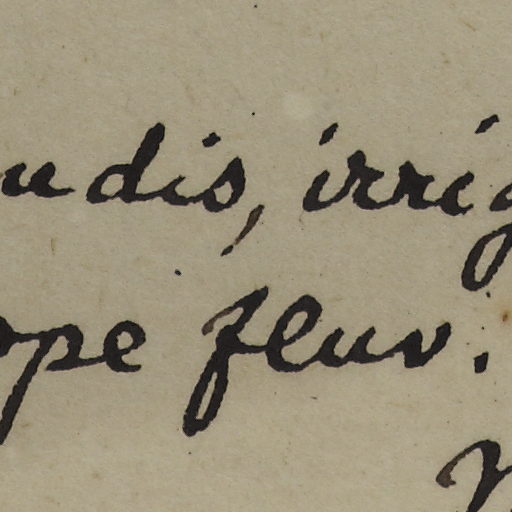 udis, irrig
ope fluv.